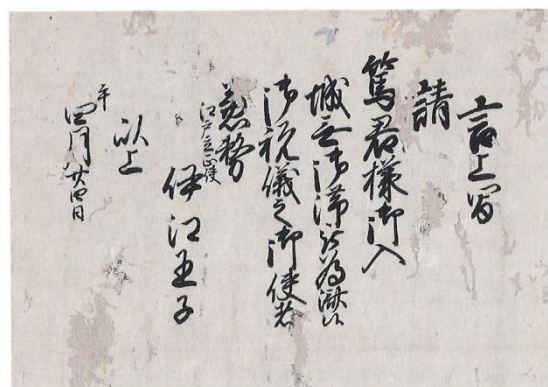 言上写
請
篤君様御入
城無御滞被為済候
御祝儀之御使者
慈勢
江戸立正使
伊江王子
以上
午
四月廿四日